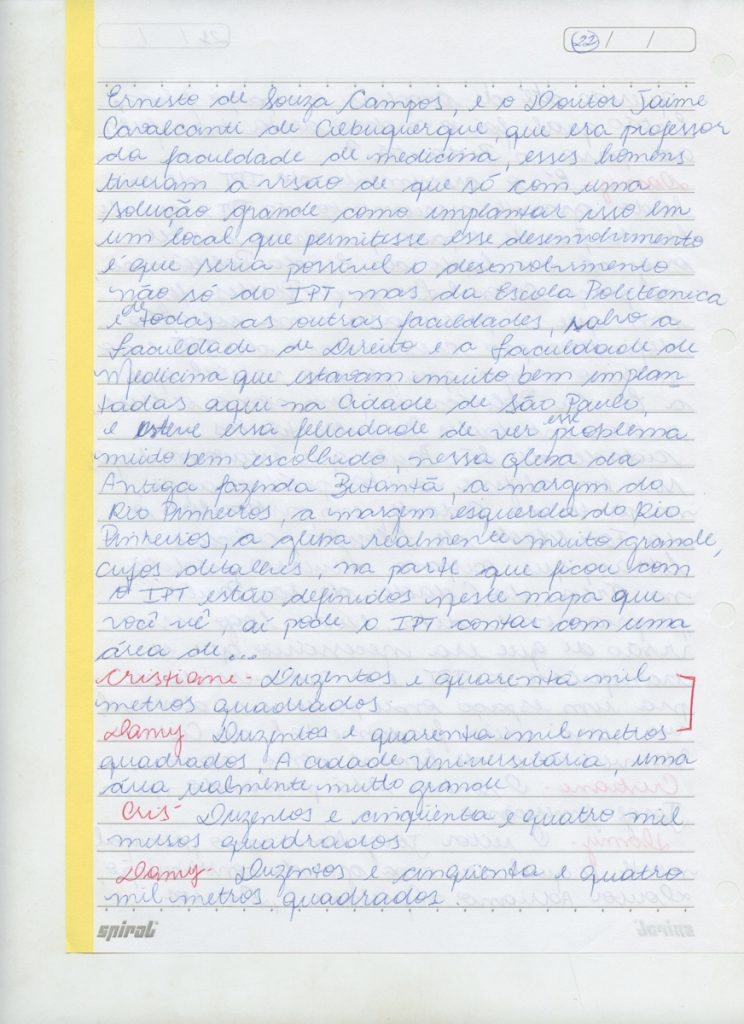 22 / /
Ernesto de Souza Campos, e o Doutor Jaime
Cavalcanti de Albuquerque, que era professor
da faculdade de medicina, esses homens
tiveram a visão de que só com uma
solução grande como implantar isso em
um local que permitisse esse desenvolvimento
é que seria possível o desenvolvimento
não só do IPT, mas da Escola Politécnica
e de todas as outras faculdades, salvo a
Faculdade de Direito e a Faculdade de
Medicina que estavam muito bem implan-
tadas aqui na Cidade de São Paulo,
e esteve essa felicidade de ver esse problema
muito bem escolhido, nessa Gleba da
Antiga fazenda Butantã, a margem do
Rio Pinheiros, a margem esquerda do Rio
Pinheiros, a gleba realmente muito grande,
cujos detalhes, na parte que ficou com
o IPT estão definidos neste mapa que
você vê, aí pode o IPT contar com uma
área de...
Cristiane - Duzentos e quarenta mil
metros quadrados.
Damy Duzentos e quarenta mil metros
quadrados, A cidade universitária, uma
área realmente muito grande
Cris - Duzentos e cinqüenta e quatro mil
metros quadrados
Damy - Duzentos e cinqüenta e quatro
mil metros quadrados.
spiral